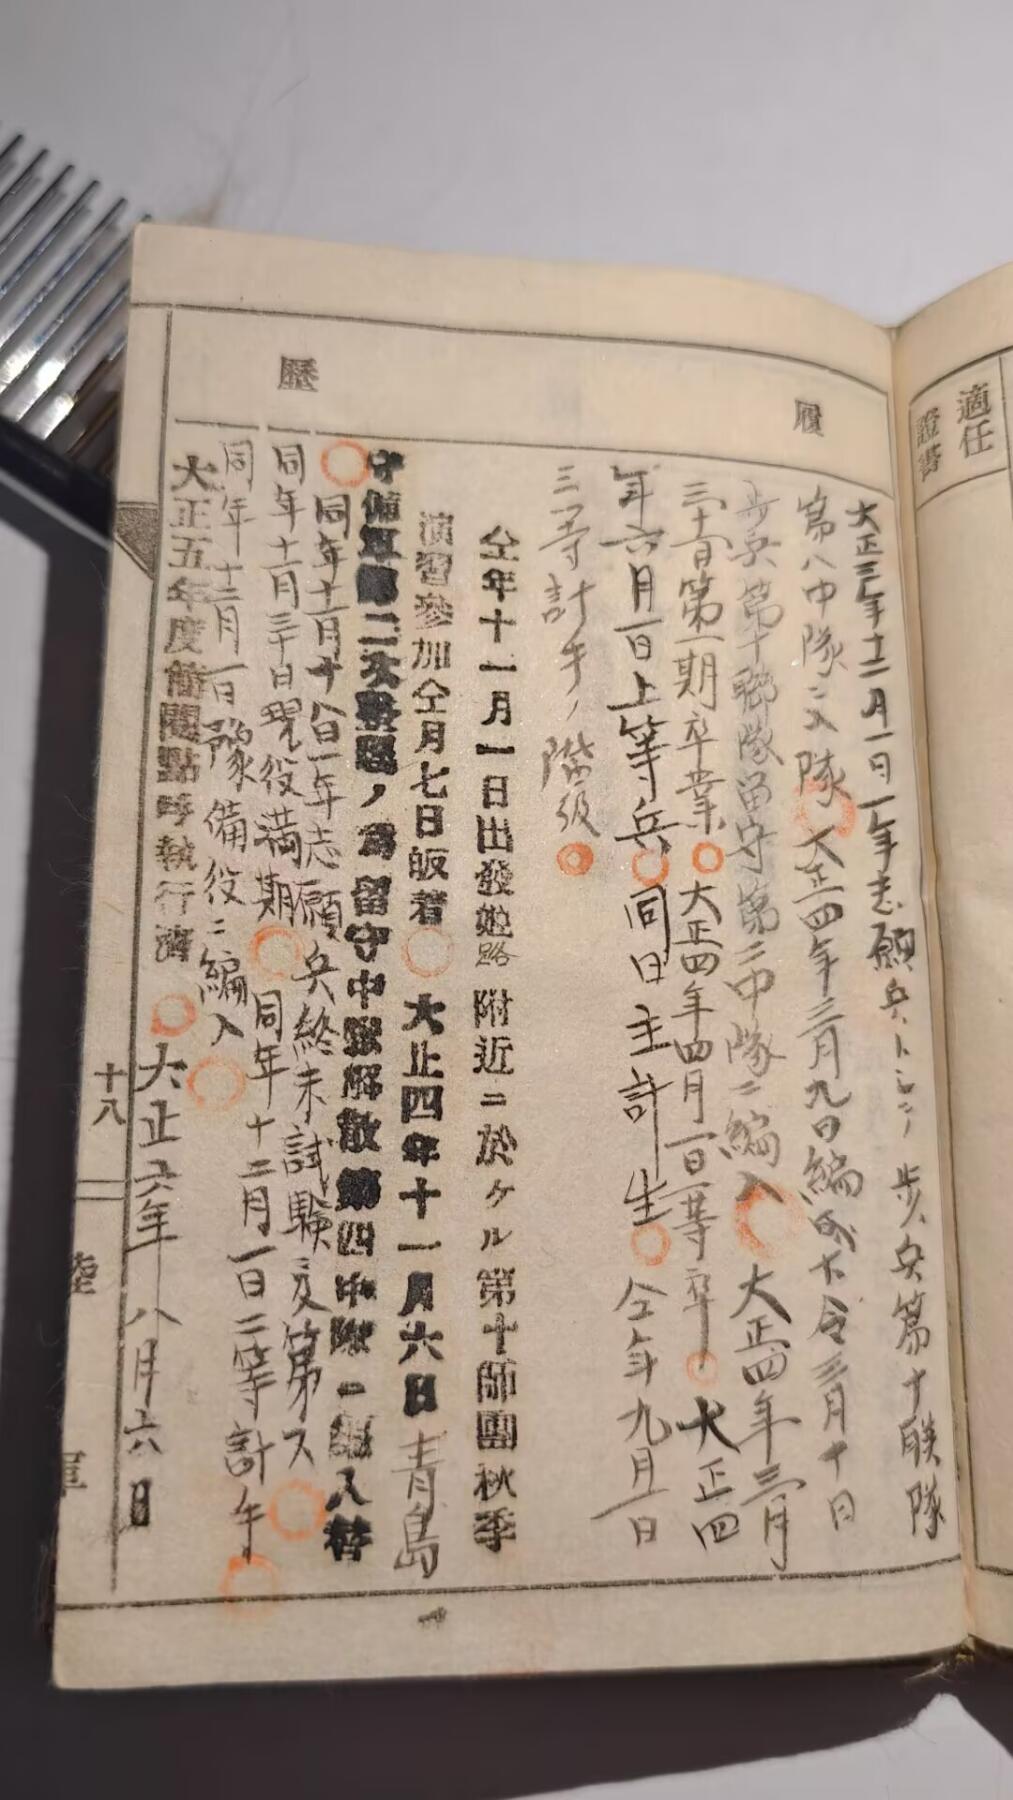 適任
證書
履
歷
大正三年十二月一日一年志願兵トシテ歩兵第十聯隊
第八中隊ニ入隊 大正四年三月九日編成下令三月十日
歩兵第十聯隊留守第二中隊ニ編入 大正四年三月
三十一日第一期卒業 大正四年四月一日一等卒 大正四
年六月一日上等兵 同日主計生 仝年九月一日
三等計手ノ階級
仝年十一月一日出發姫路附近ニ於ケル第十師團秋季
演習參加仝月七日皈着 大正四年十一月六日青島
守備軍第二次整理ノ爲留守中隊解散第四中隊ニ編入替
同年十一月十八日一年志願兵終末試験ニ及第ス
同年十一月三十日現役満期 同年十二月一日二等計手
同年十二月一日豫備役ニ編入
大正五年度簡閲點呼執行濟 大正六年八月六日
十八
陸
軍